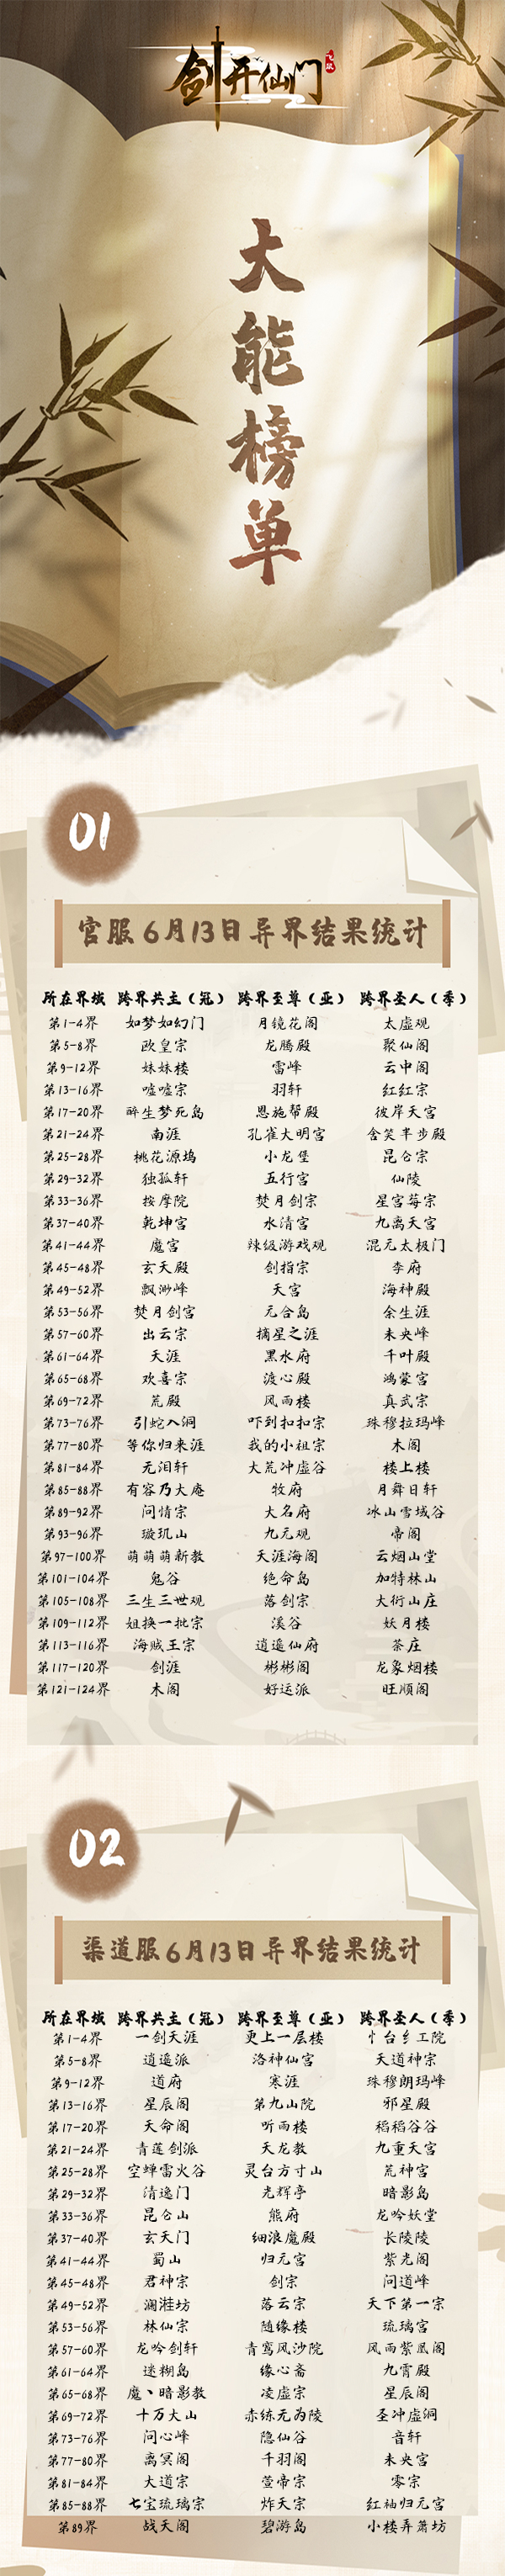 剑开仙门
飞鼠
大能榜单
01
官服6月13日异界结果统计
所在界域 跨界共主（冠） 跨界至尊（亚） 跨界圣人（季）
第1-4界 如梦如幻门 月镜花阁 太虚观
第5-8界 欧皇宗 龙腾殿 聚仙阁
第9-12界 妹妹楼 雷峰 云中阁
第13-16界 嘘嘘宗 羽轩 红红宗
第17-20界 醉生梦死岛 恩施帮殿 彼岸天宫
第21-24界 南涯 孔雀大明宫 含笑半步殿
第25-28界 桃花源坞 小龙堡 昆仑宗
第29-32界 独孤轩 五行宫 仙陵
第33-36界 按摩院 焚月剑宗 星宫莓宗
第37-40界 乾坤宫 水清宫 九离天宫
第41-44界 魔宫 辣级游戏观 混元太极门
第45-48界 玄天殿 剑指宗 李府
第49-52界 飘渺峰 天宫 海神殿
第53-56界 焚月剑宫 元合岛 余生涯
第57-60界 出云宗 摘星之涯 未央峰
第61-64界 天涯 黑水府 千叶殿
第65-68界 欢喜宗 渡心殿 鸿蒙宫
第69-72界 荒殿 风雨楼 真武宗
第73-76界 引蛇入洞 吓到扣扣宗 珠穆拉玛峰
第77-80界 等你归来涯 我的小祖宗 木阁
第81-84界 元泪轩 大荒冲虚谷 楼上楼
第85-88界 有容乃大庵 牧府 月舞日轩
第89-92界 问情宗 大名府 冰山雪域谷
第93-96界 璇玑山 九元观 帝阁
第97-100界 萌萌萌新教 天涯海阁 云烟山堂
第101-104界 鬼谷 绝命岛 加特林山
第105-108界 三生三世观 落剑宗 大衍山庄
第109-112界 姐换一批宗 溪谷 妖月楼
第113-116界 海贼王宗 逍遥仙府 茶庄
第117-120界 剑涯 彬彬阁 龙象烟楼
第121-124界 木阁 好运派 旺顺阁
02
渠道服6月13日异界结果统计
所在界域 跨界共主（冠） 跨界至尊（亚） 跨界圣人（季）
第1-4界 一剑天涯 更上一层楼 忄台纟工院
第5-8界 逍遥派 洛神仙宫 天道神宗
第9-12界 道府 寒涯 珠穆朗玛峰
第13-16界 星辰阁 第九山院 邪星殿
第17-20界 天命阁 听雨楼 稻稻谷谷
第21-24界 青莲剑派 天龙教 九重天宫
第25-28界 空蝉雷火谷 灵台方寸山 荒神宫
第29-32界 清逸门 光辉亭 暗影岛
第33-36界 昆仑山 熊府 龙吟妖堂
第37-40界 玄天门 细浪魔殿 长陵陵
第41-44界 蜀山 归元宫 紫光阁
第45-48界 君神宗 剑宗 问道峰
第49-52界 澜溎坊 落云宗 天下第一宗
第53-56界 林仙宗 随缘楼 琉璃宫
第57-60界 龙吟剑轩 青鸾风沙院 风雨紫凰阁
第61-64界 迷糊岛 缘心斋 九霄殿
第65-68界 魔丶暗影教 凌虚宗 星辰阁
第69-72界 十万大山 赤练元为陵 圣冲虚洞
第73-76界 问心峰 隐仙谷 音轩
第77-80界 离冥阁 千羽阁 未央宫
第81-84界 大道宗 萱帝宗 零宗
第85-88界 七宝琉璃宗 炸天宗 红袖归元宫
第89界 战天阁 碧游岛 小楼弄萧坊